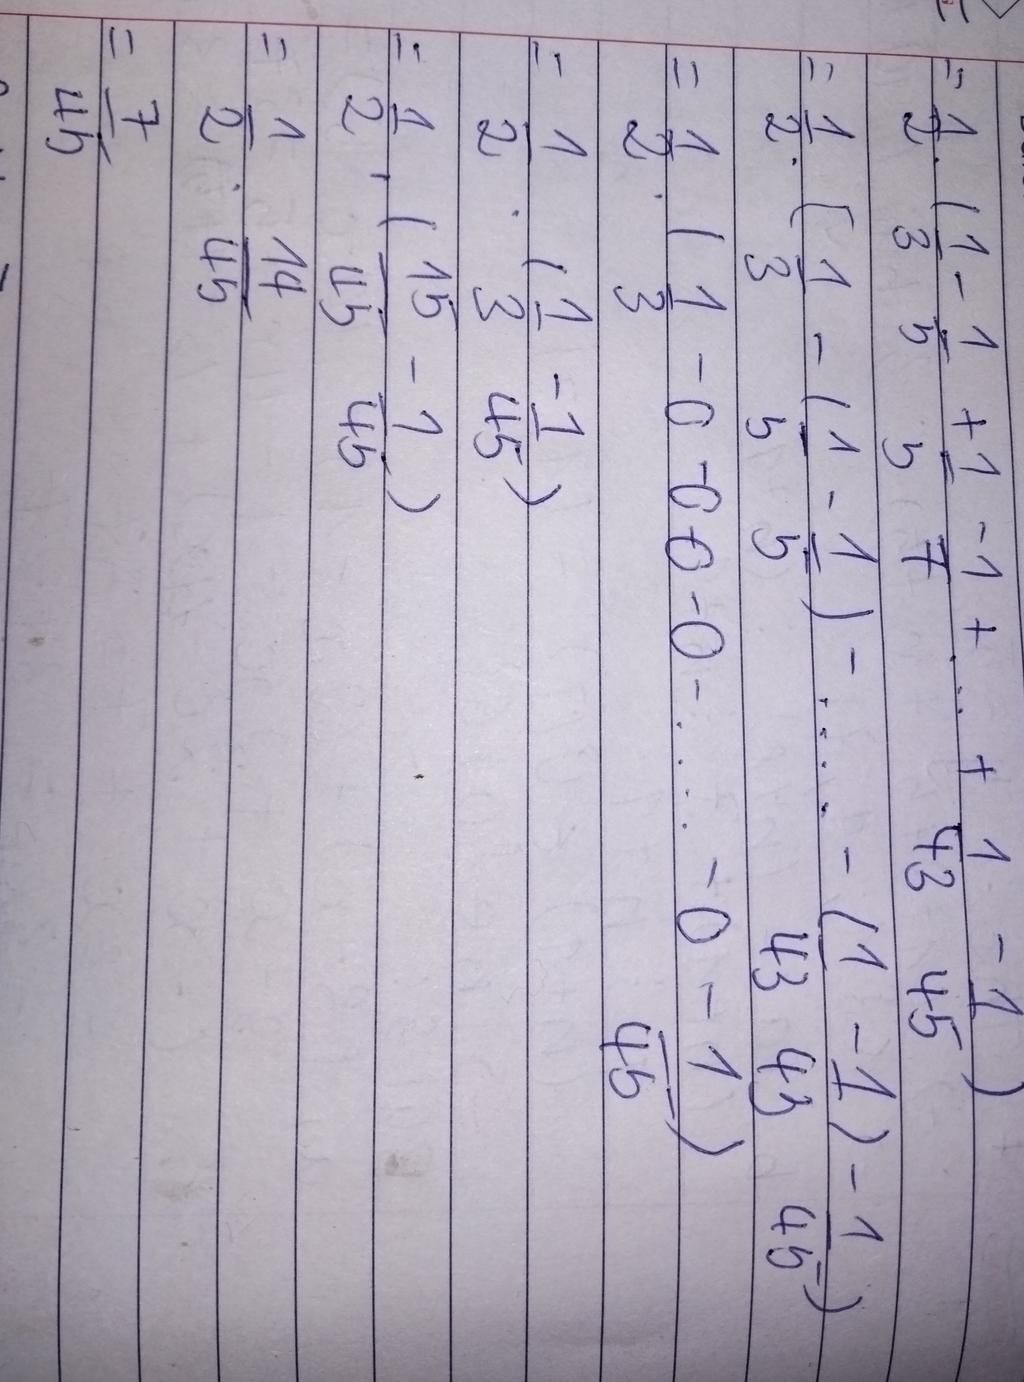 = 1/2 . (1/3 - 1/5 + 1/5 - 1/7 + ... + 1/43 - 1/45)
= 1/2 . [1/3 - (1/5 - 1/5) - .... - (1/43 - 1/43) - 1/45)
= 1/2 . (1/3 - 0 - 0 0 - 0 - .... - 0 - 1/45)
= 1/2 . (1/3 - 1/45)
= 1/2 . (15/45 - 1/45)
= 1/2 . 14/45
= 7/45